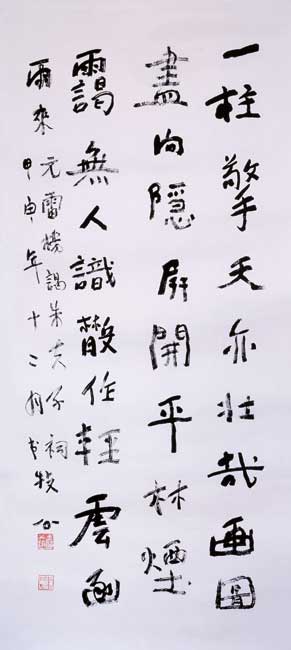 一柱擎天亦壯哉画圖
盡向隱屏開平林煙
靄無人識散作輕雲函
雨來
元雷機謁朱夫子祠牧公
甲申年十二月書